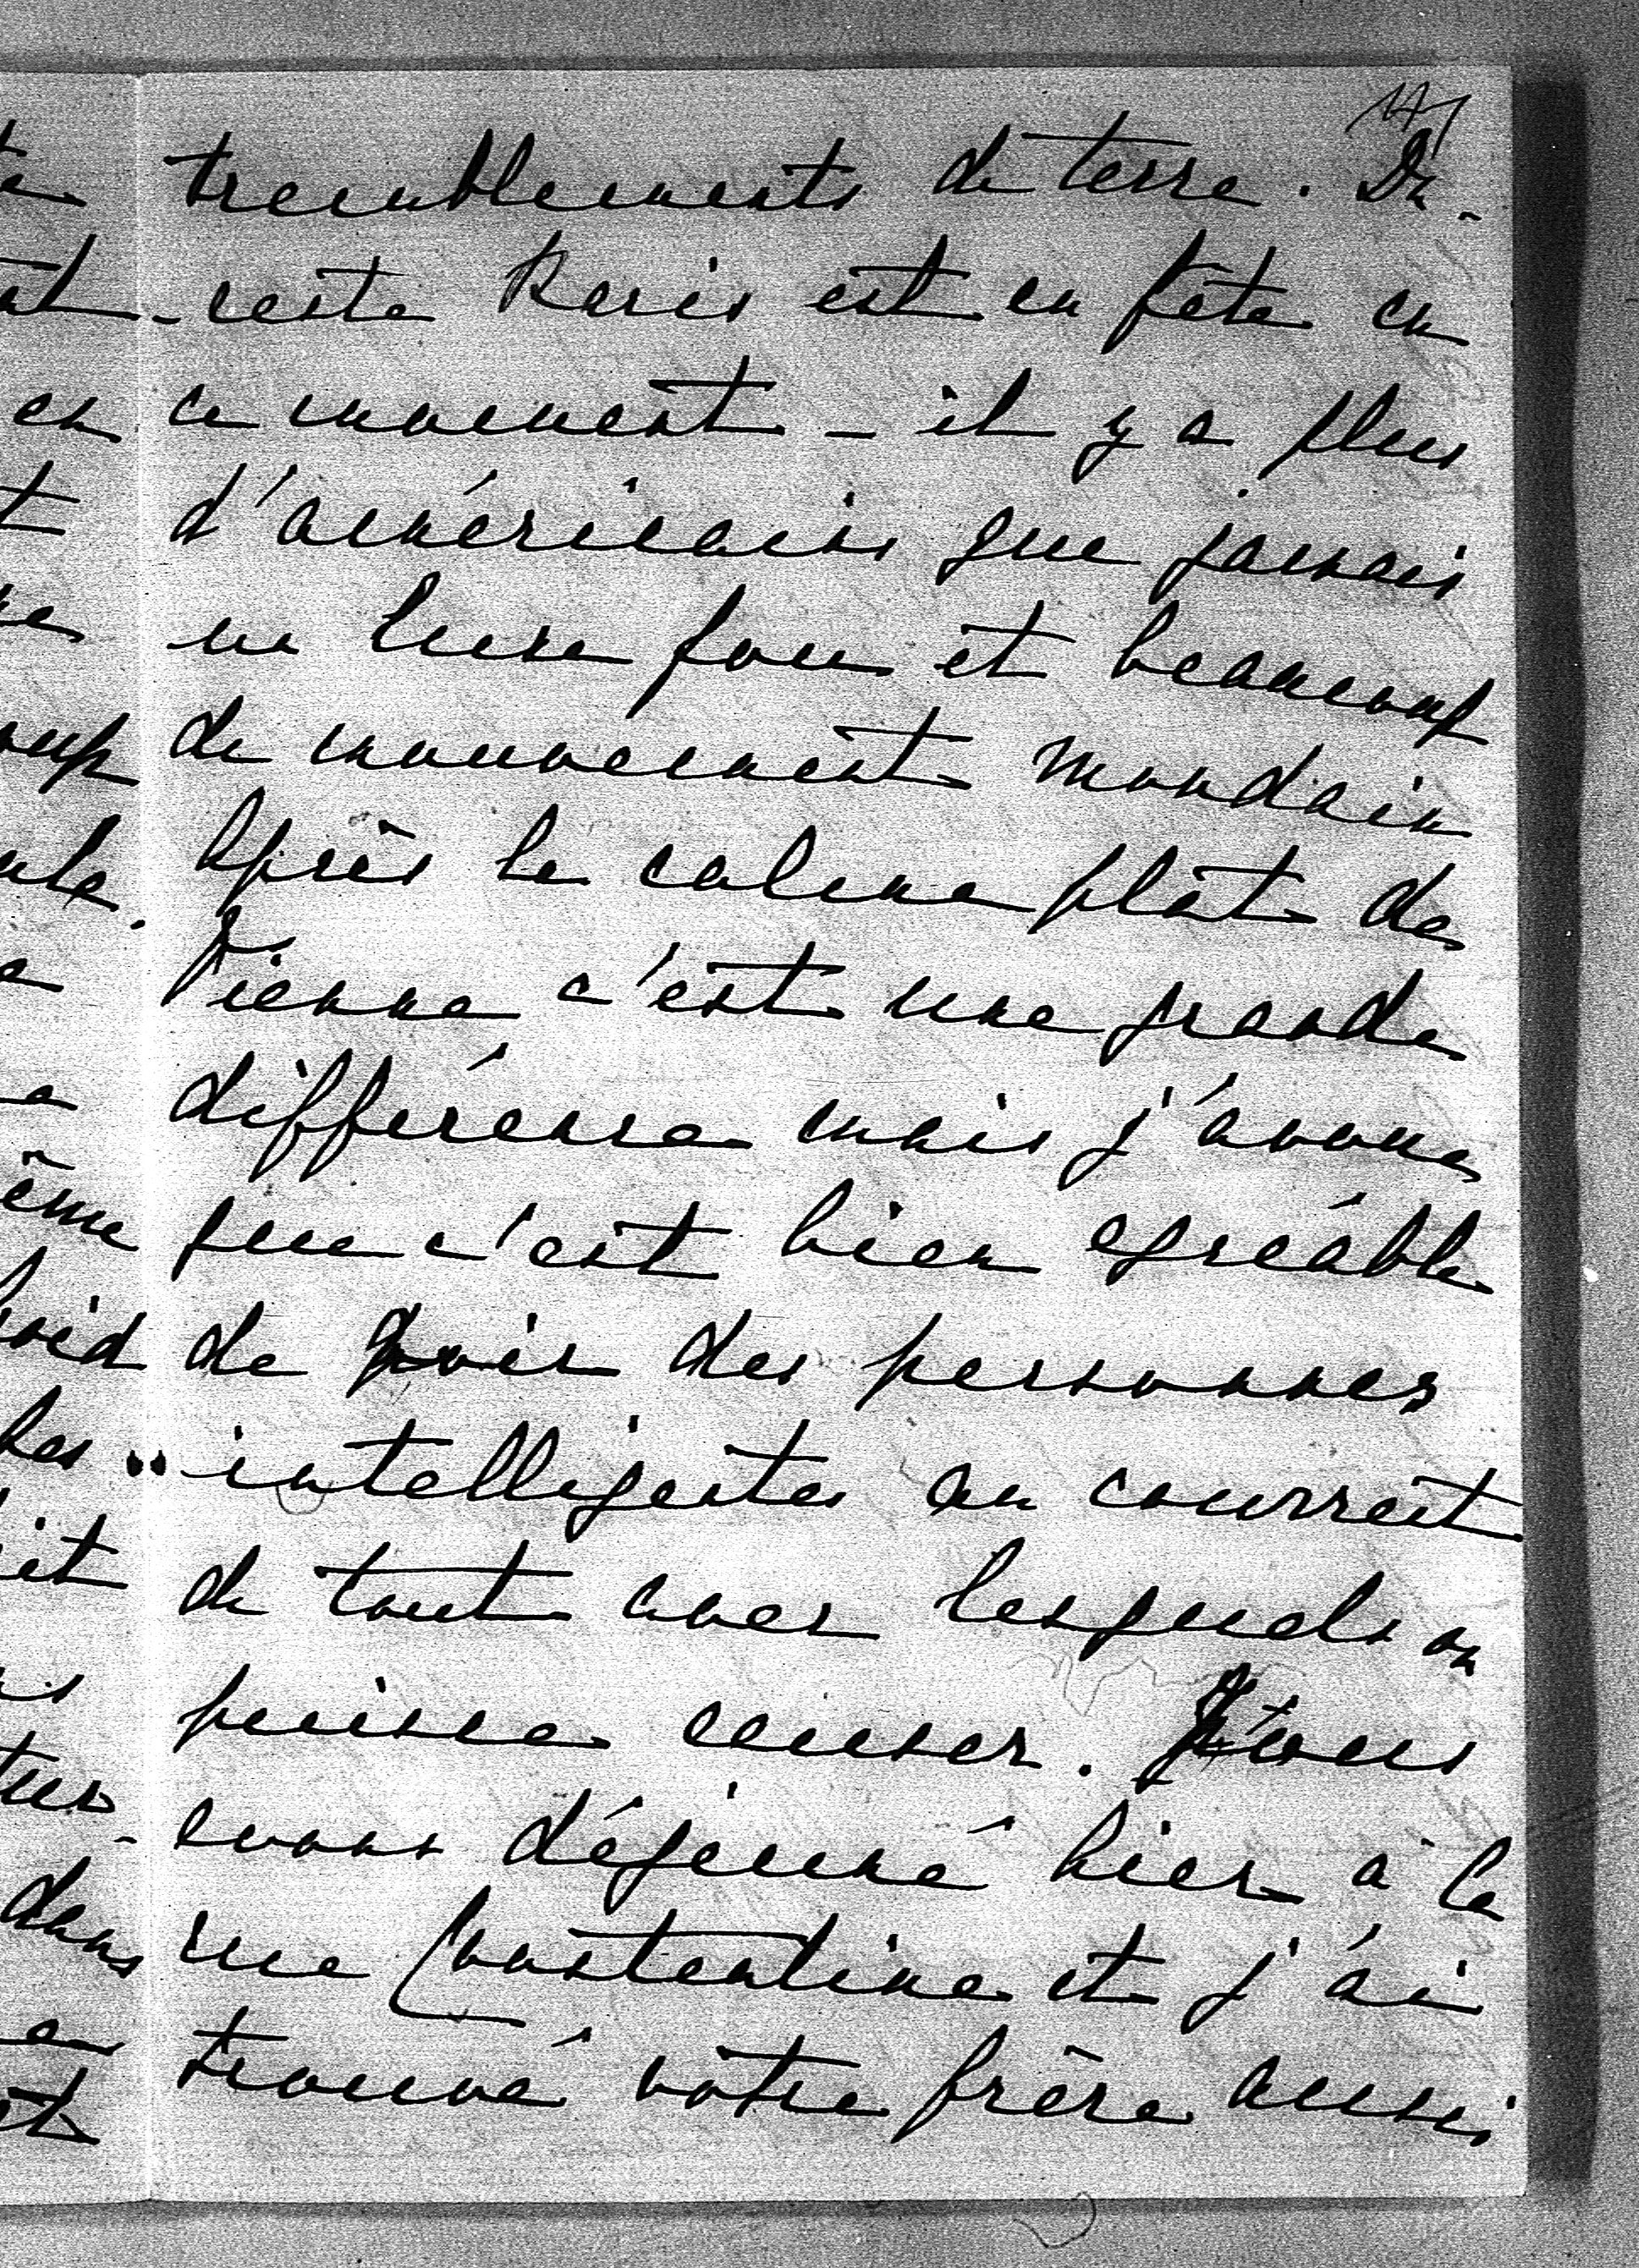 147
tremblements de terre. Du-
-reste Paris est en fête en
ce moment - il y a plus
d'américains que jamais
un luxe fou et beaucoup
de mouvement mondain
Après le calme plat de
Vienne c'est une grande
différence mais j'avoue
que c'est bien agréable
de voir des personnes
intelligentes au courrent
de tout avec lesquels on
puisse causer. Nous
avons déjeuné hier à la
rue Constantine et j'ai
trouvé votre frère aussi